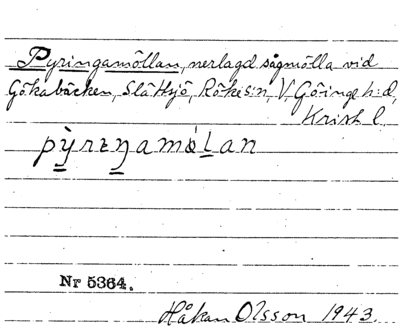 Pyringamöllan, nerlagd sågmölla vid
Gökabäcken, Slättsjö, Röke s:n, V. Göinge h:d,
Krist l.
pỳrɪŋamölan
Nr 5364.
Håkan Olsson 1943.